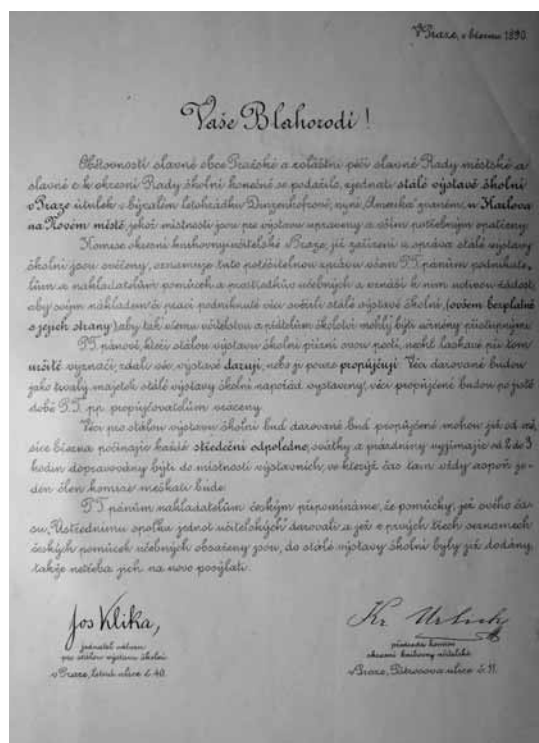 V Praze, v březnu 1890.
Vaše Blahorodí!
Obětovností slavné obce Pražské a zvláštní péčí slavné Rady městské a
slavné c. k. okresní Rady školní konečně se podařilo, zjednati stálé výstavě školní
v Praze útulek v bývalém letohrádku Dinzenhofrově, nyní „Amerika“ zvaném, u Karlova
na Novém městě, jehož místnosti jsou pro výstavu upraveny a vším potřebným opatřeny.
Komise okresní knihovny učitelské v Praze, jíž zařízení a správa stálé výstavy
školní jsou svěřeny, oznamuje tuto potěšitelnou zprávu všem P. T. pánům podnikate-
lům a nakladatelům pomůcek a prostředkův učebných a vznáší k nim uctivou žádost,
aby svým nákladem či prací podniknuté věci svěřili stálé výstavě školní, (ovšem bezplatně
s jejich strany) aby tak všemu učitelstvu a přátelům školství mohly býti učiněny přístupnými.
P. T. pánové, kteří stálou výstavu školní přízní svou poctí, nechť laskavě při tom
určitě vyznačí, zdali věc výstavě darují, nebo jí pouze propůjčují. Věci darované budou
jako trvalý majetek stálé výstavy školní napořád vystaveny; věci propůjčené budou po jisté
době P. T. pp. propůjčovatelům vráceny.
Věci pro stálou výstavu školní buď darované buď propůjčené mohou již od mě-
síce března počínajíc každé středeční odpoledne, svátky a prázdniny vyjímajíc od 2 do 3
hodin dopravovány býti do místností výstavních, ve kterýž čas tam vždy aspoň je-
den člen komise meškati bude.
P. T. pánům nakladatelům českým připomínáme, že pomůcky, jež svého ča-
su „Ústřednímu spolku jednot učitelských“ darovali a jež v prvých třech seznamech
českých pomůcek učebných obsaženy jsou, do stálé výstavy školní byly již dodány,
takže netřeba jich na novo posýlati.
Jos Klika,
jednatel
pro stálou výstavu školní
v Praze, Letná ulice č. 40.
Fr.
předseda komise
okresní knihovny učitelské
v Praze, Pštrosova ulice č. 11.